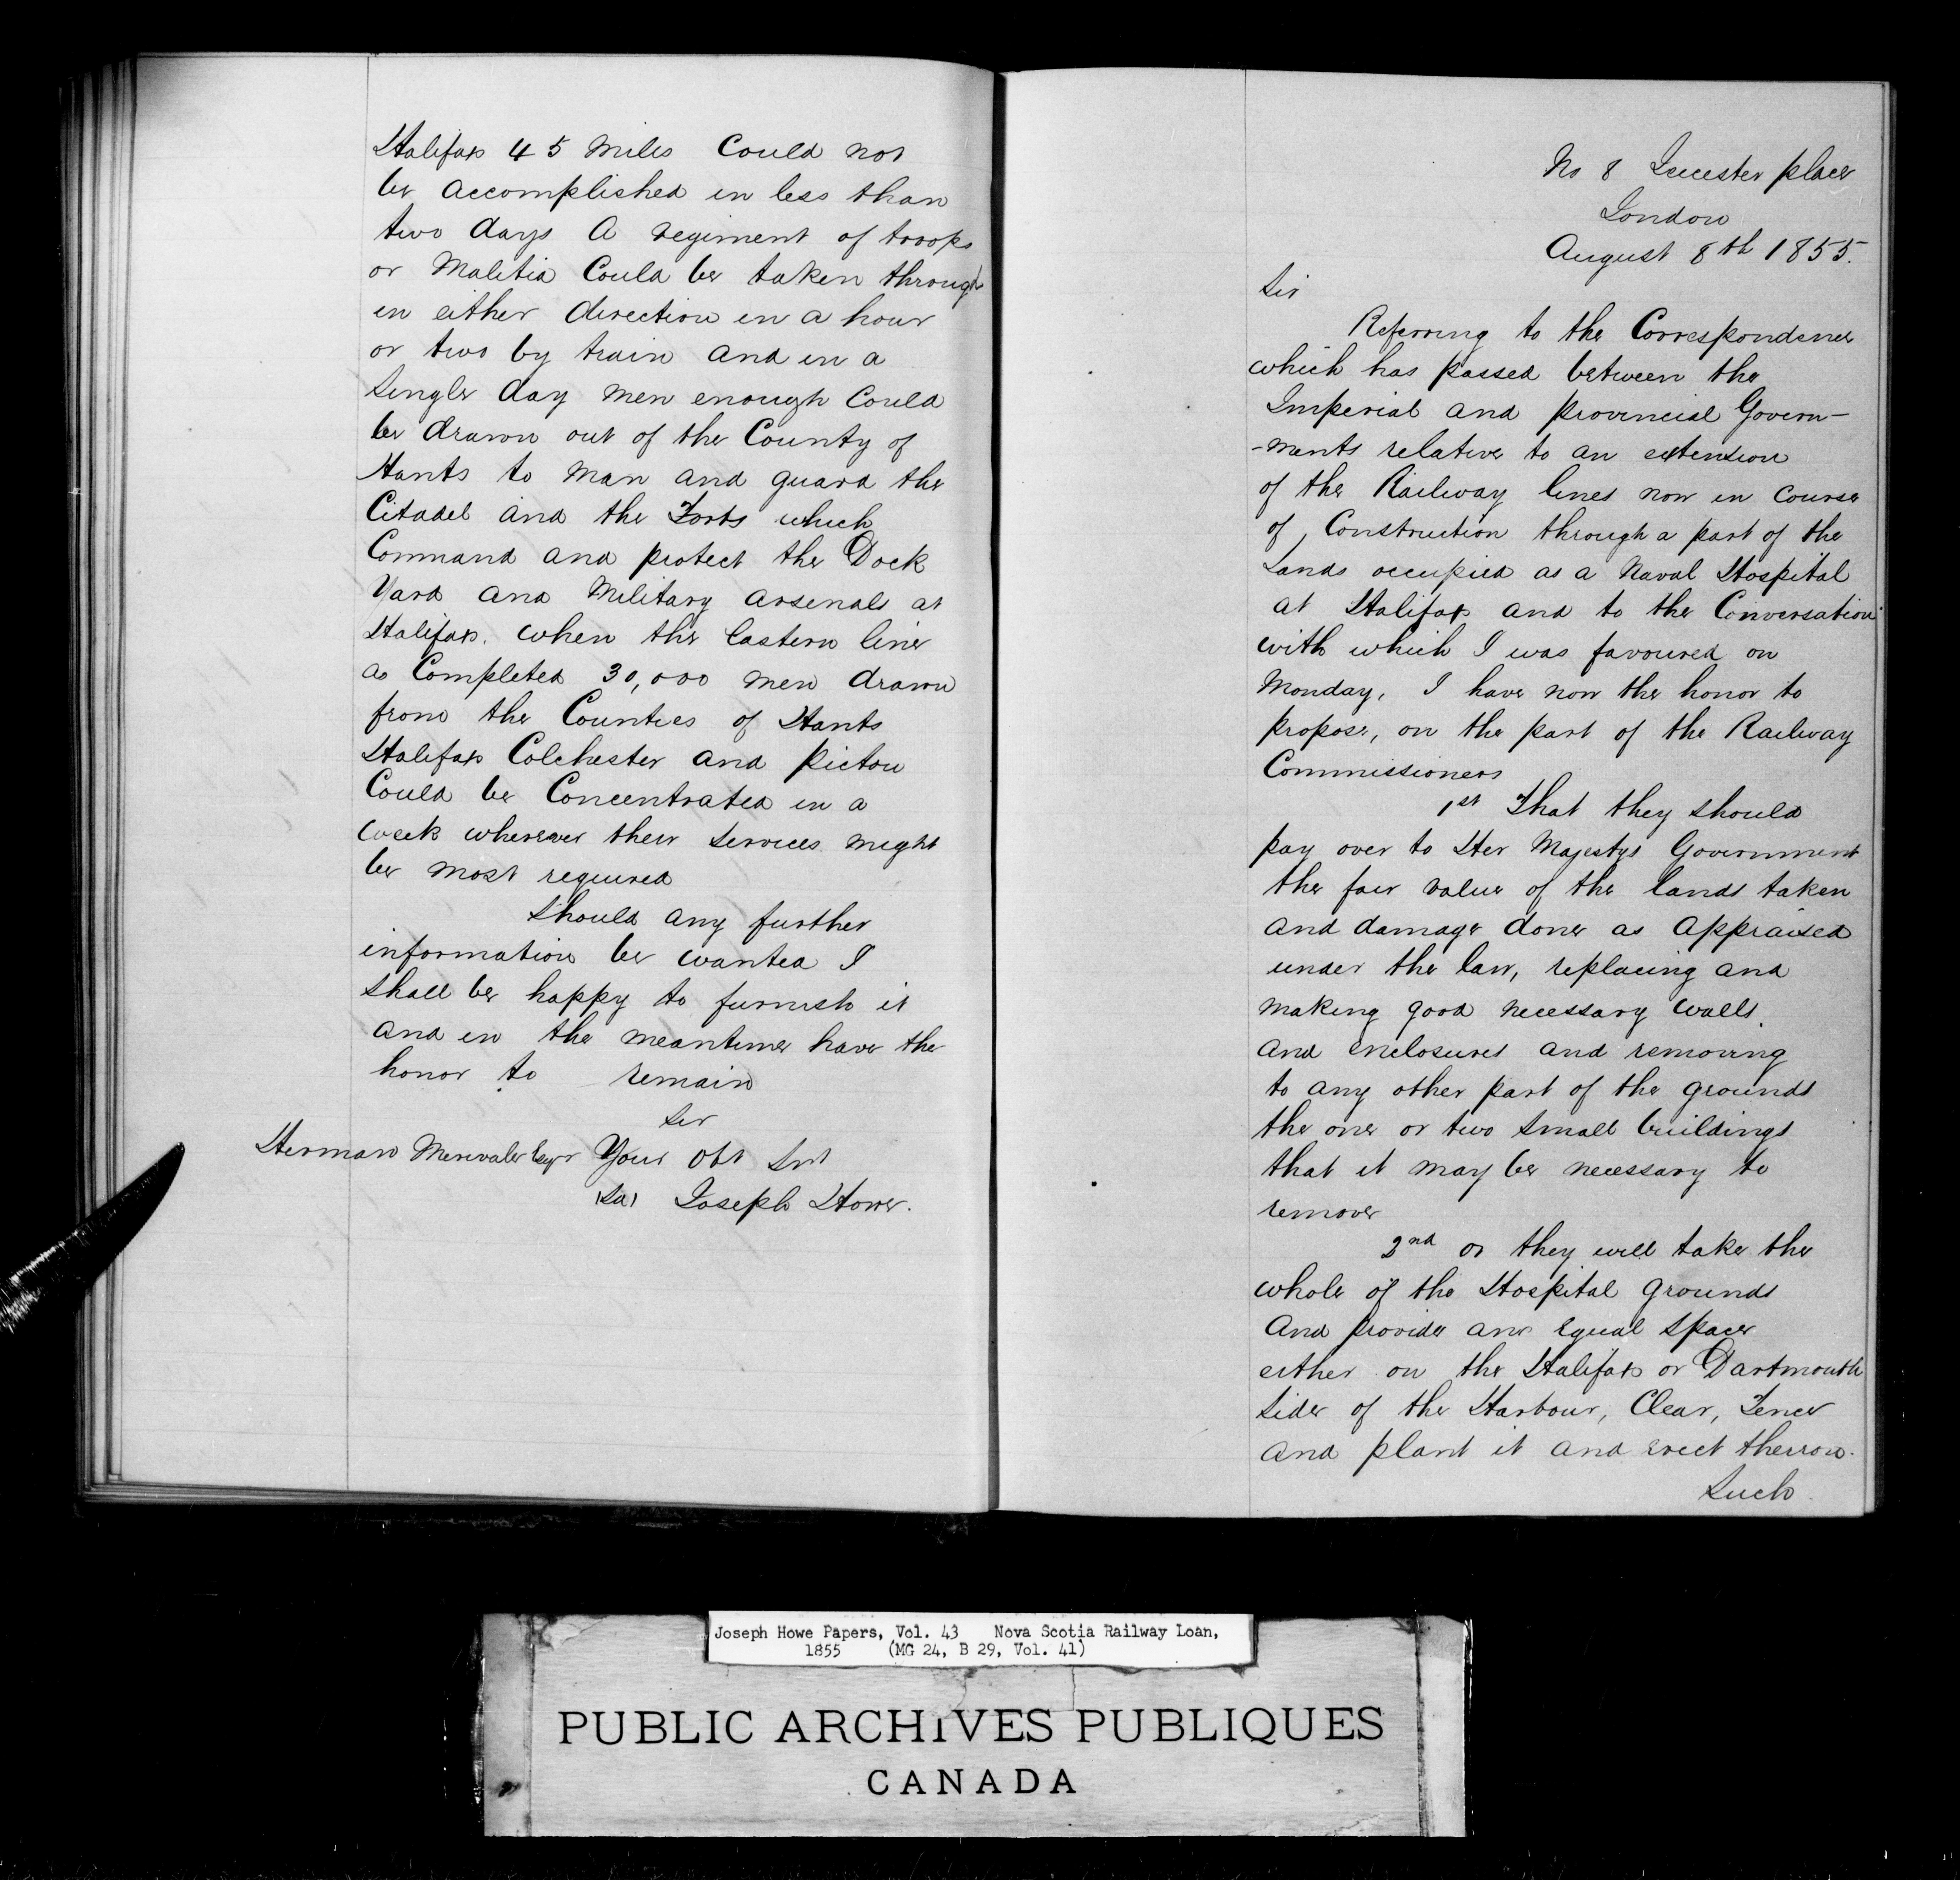 Halifax 45 Miles Could not
be accomplished in less than
two days A regiment of troops
or Malitia Could be taken through
in either direction in a hour
or two by train and in a
Single day men enough Could
be drawn out of the County of
Hants to man and guard the
Citadel and the Forts which
Command and protect the Dock
Yard and Military arsenals at
Halifax. when the Eastern line
as Completed 30,000 men drawn
from the Counties of Hants
Halifax Colchester and Pictou
Could be Concentrated in a
week wherever their Services might
be most required
Should any further
information be wanted I
Shall be happy to furnish it
and in the meantime have the
honor to remain
Sir
Herman Merivale Esqr Your Obt Srvt
(Sd) Joseph Howe.
No 8 Leicester place
London
August 8th 1855.
Sir
Referring to the Correspondence
which has passed between the
Imperial and provincial Govern-
-ments relative to an extension
of the Railway lines now in Course
of, Construction through a part of the
Lands occupied as a Naval Hospital
at Halifax and to the Conversation
with which I was favoured on
Monday, I have now the honor to
propose, on the part of the Railway
Commissioners
1st That they should
pay over to Her Majestys Government
the fair value of the lands taken
and damage done as appraised
under the law, replacing and
making good necessary walls.
and enclosures and removing
to any other part of the grounds
the one or two small buildings
that it may be necessary to
remove
2nd or they will take the
whole of the Hospital grounds
and provide an equal space
either on the Halifax or Dartmouth
Side of the Harbour, Clear, Fence
and plant it and erect thereon.
Such
Joseph Howe Papers, Vol. 43 Nova Scotia Railway Loan,
1855 (MG 24, B 29, Vol. 41)
PUBLIC ARCHIVES PUBLIQUES
CANADA